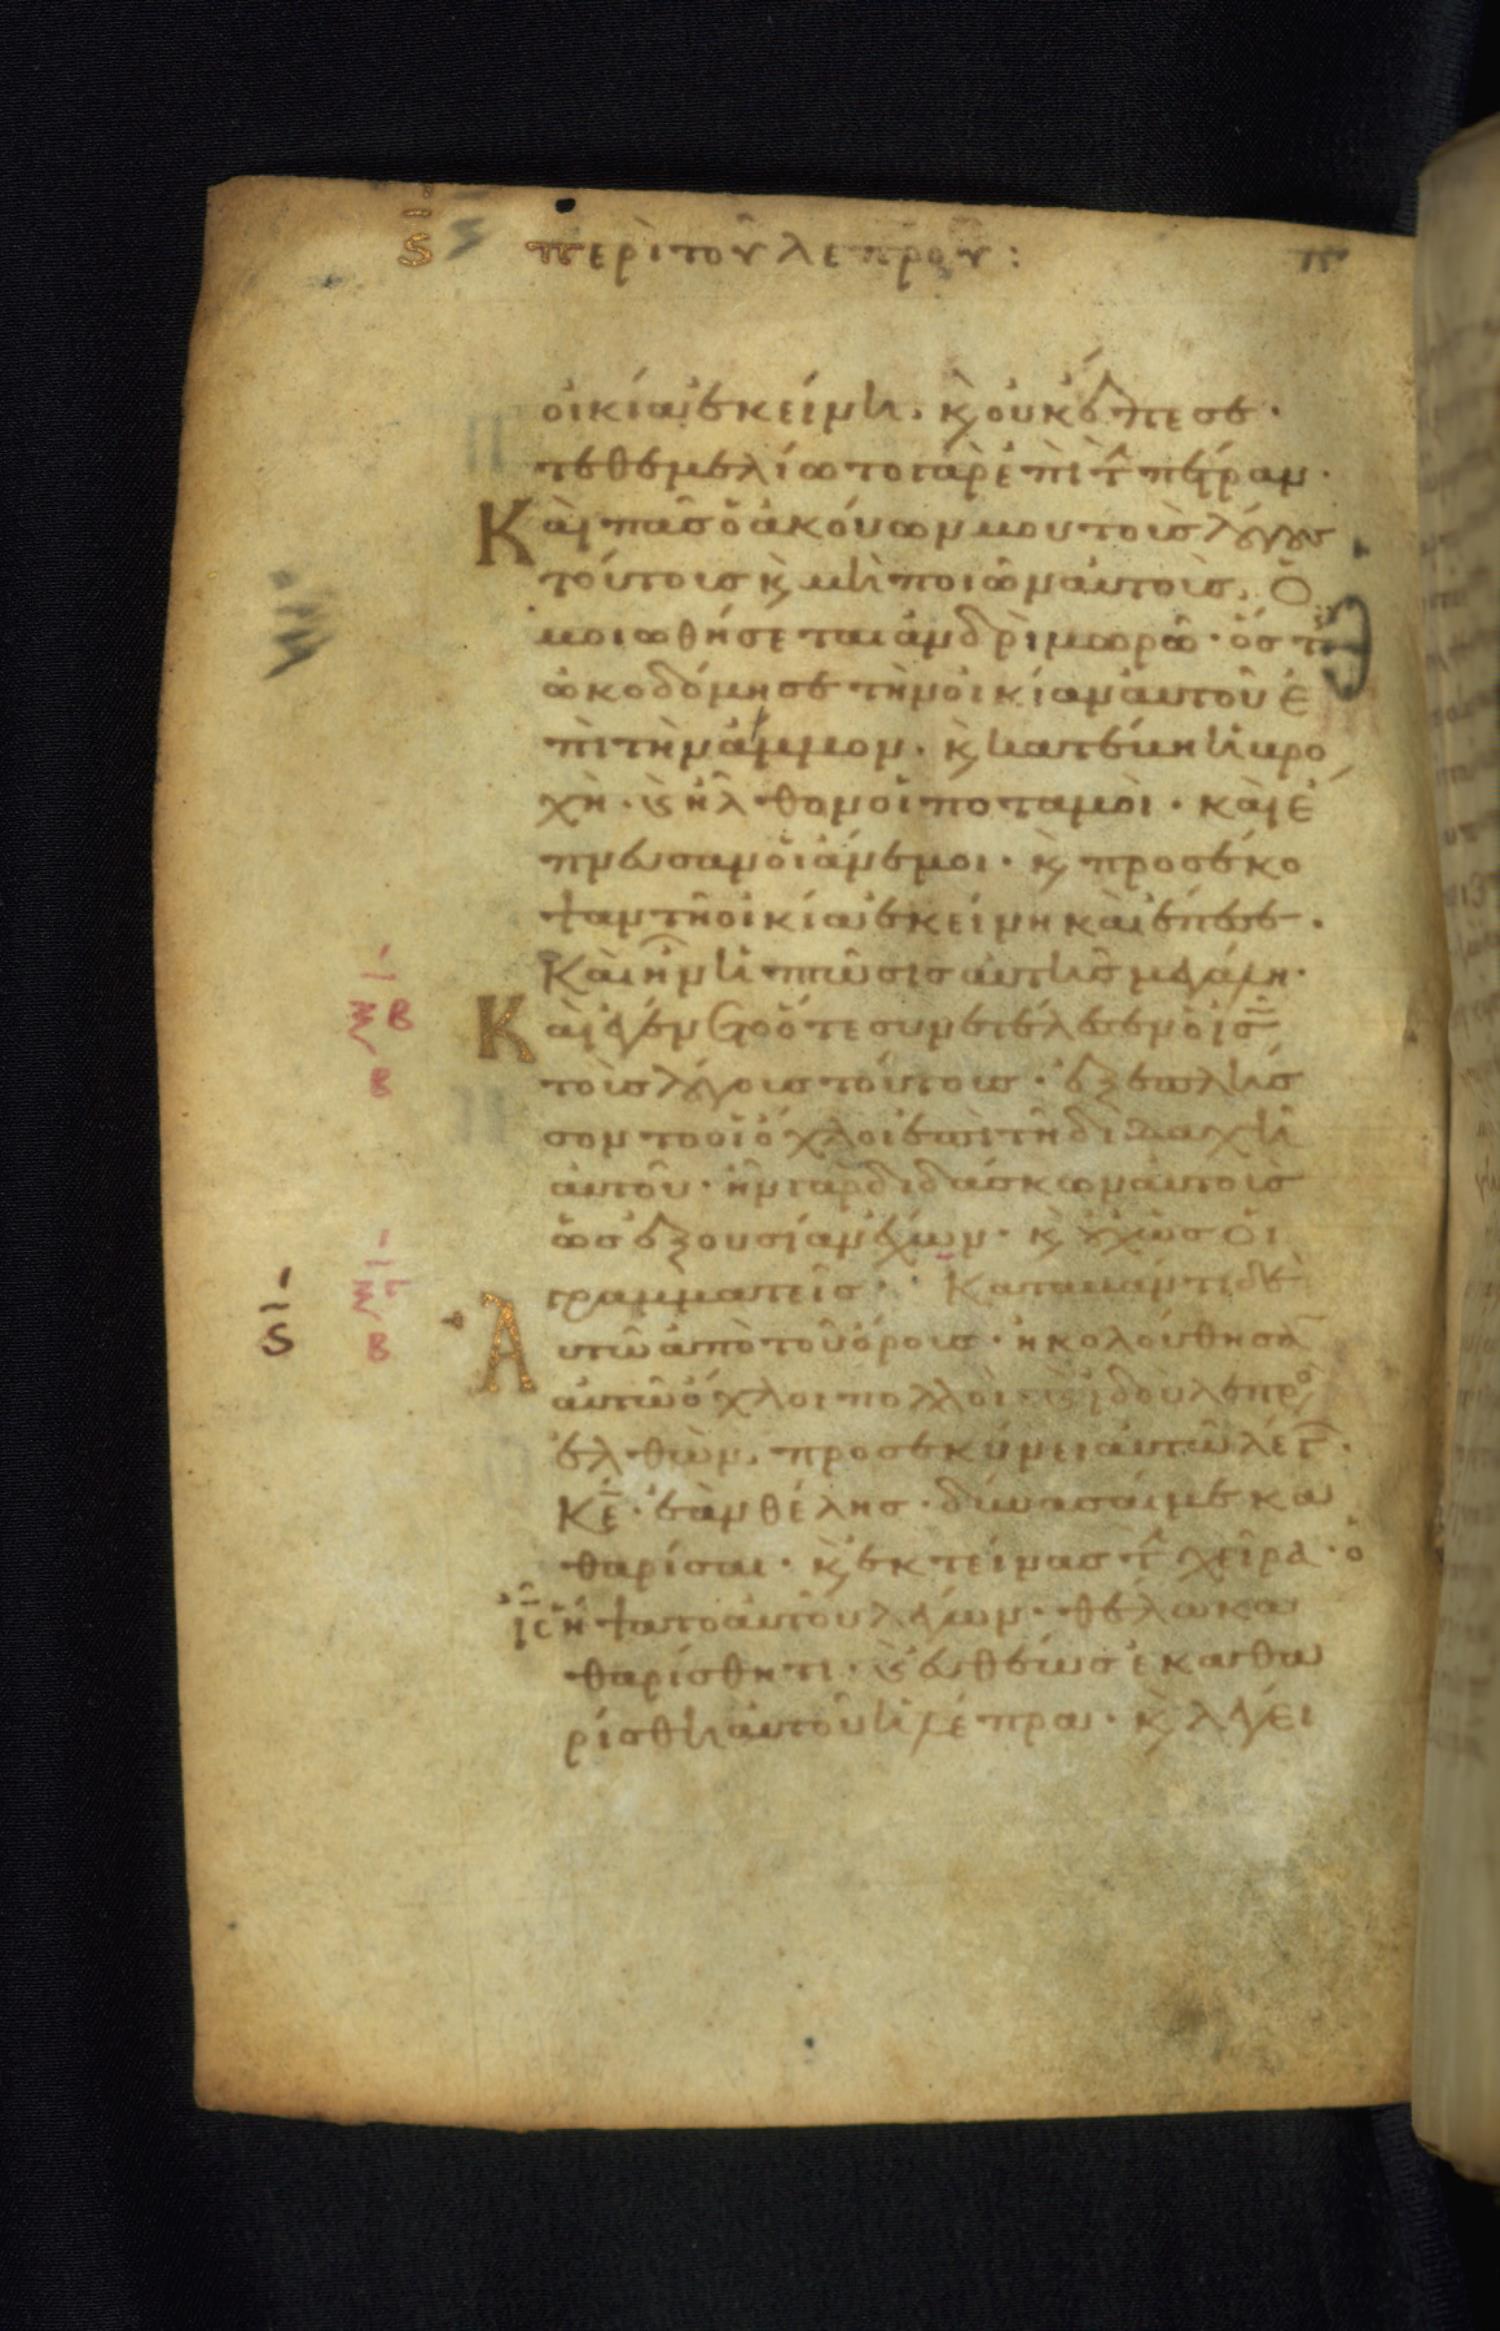 ς περὶ τοῦ λεπροῦ :
οἰκία ἐκείνη. κ οὐκ ἔπεσε·
τεθεμελίωτο γὰρ ἐπὶ τ πέτραν·
Καὶ πᾶσ ὁ ἀκούων μου τοὺσ λόγουσ
τούτουσ κ μὴ ποιῶν αὐτοὺσ. Ὁ
μοιωθήσεται ἀνδρὶ μωρῶ· ὅστισ
ὠκοδόμησε τὴν οἰκίαν αὐτοῦ ἐ
πὶ τὴν ἄμμον· κ κατέβη ἡ βρο
χὴ· κ ἦλθον οἱ ποταμοὶ· καὶ ἔ
πνευσαν οἱ ἄνεμοι· κ προσέκο
ψαν τῆ οἰκία ἐκείνη καὶ ἔπεσε·
Καὶ ἦν ἡ πτῶσισ αὐτῆσ μεγάλη·
Καὶ ἐγένετο ὅτε συνετέλεσεν ὁ ισ
τοὺσ λόγουσ τούτουσ· ἐξεπλήσ
σοντο οἱ ὄχλοι ἐπὶ τῆ διδαχῆ
αὐτοῦ· ἦν γὰρ διδάσκων αὐτοὺσ
ὡσ ἐξουσίαν ἔχων· κ οὐχ ὡσ οἱ
γραμματεῖσ· Καταβάντι δὲ
Αὐτῶ ἀπὸ τοῦ ὄρουσ· ἠκολούθησα
αὐτῶ ὄχλοι πολλοὶ· κ ἰδοὺ λεπρο
ἐλθὼν. προσεκύνει αὐτῶ λέγ·
Κε· ἐὰν θέλησ· δύνασαί με κα
θαρίσαι· κ ἐκτείνασ τ χεῖρα· ὁ
ισ ἥψατο αὐτοῦ λέγων· θέλω κα
θαρίσθητι· κ εὐθέωσ ἐκαθα
ρίσθη αὐτοῦ ἡ λέπρα· κ λέγει